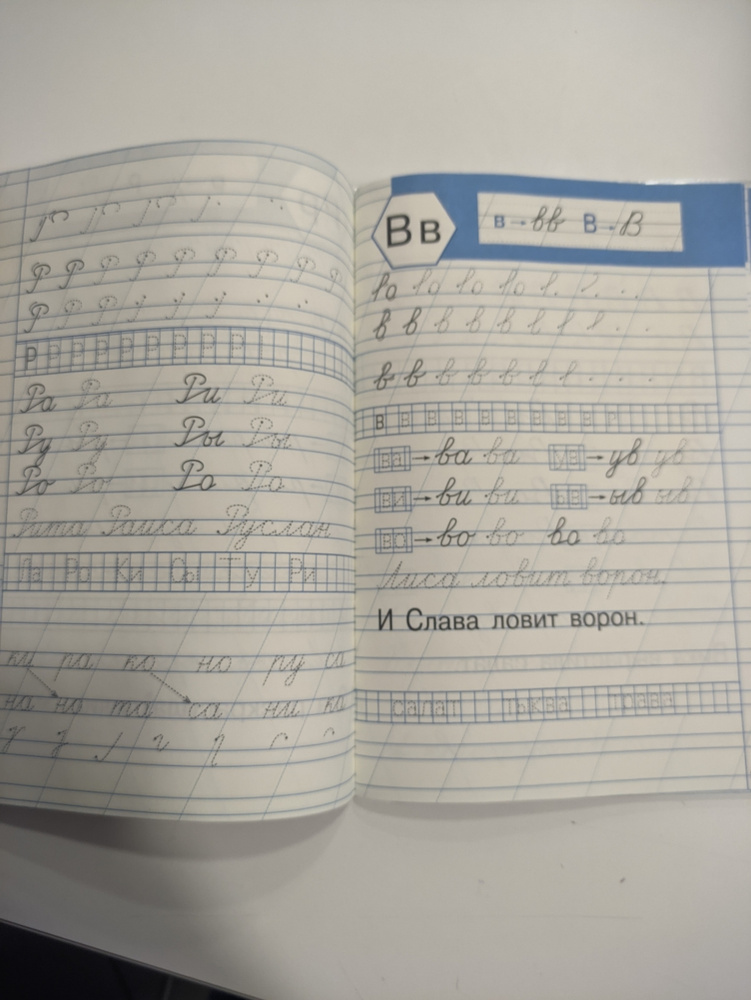 Р Р Р Р Р Р Р Р
Р Р Р Р
Р Р Р Р Р Р Р Р Р
Ра Ра Ри Ри
Ру Ру Ры Ры
Ро Ро Ра Ра
Рита Раиса Руслан
Ла Ро Ки Сы Ту Ри
ки ра ко но ру са
на но та са ни ка
Вв
в → вв В → В
в в в в в в
в в в в в в
в в в в в в в в в
ва → ва ва ув → ув ув
ви → ви ви ыв → ыв ыв
во → во во во во
Лиса ловит ворон.
И Слава ловит ворон.
салат тыква трава